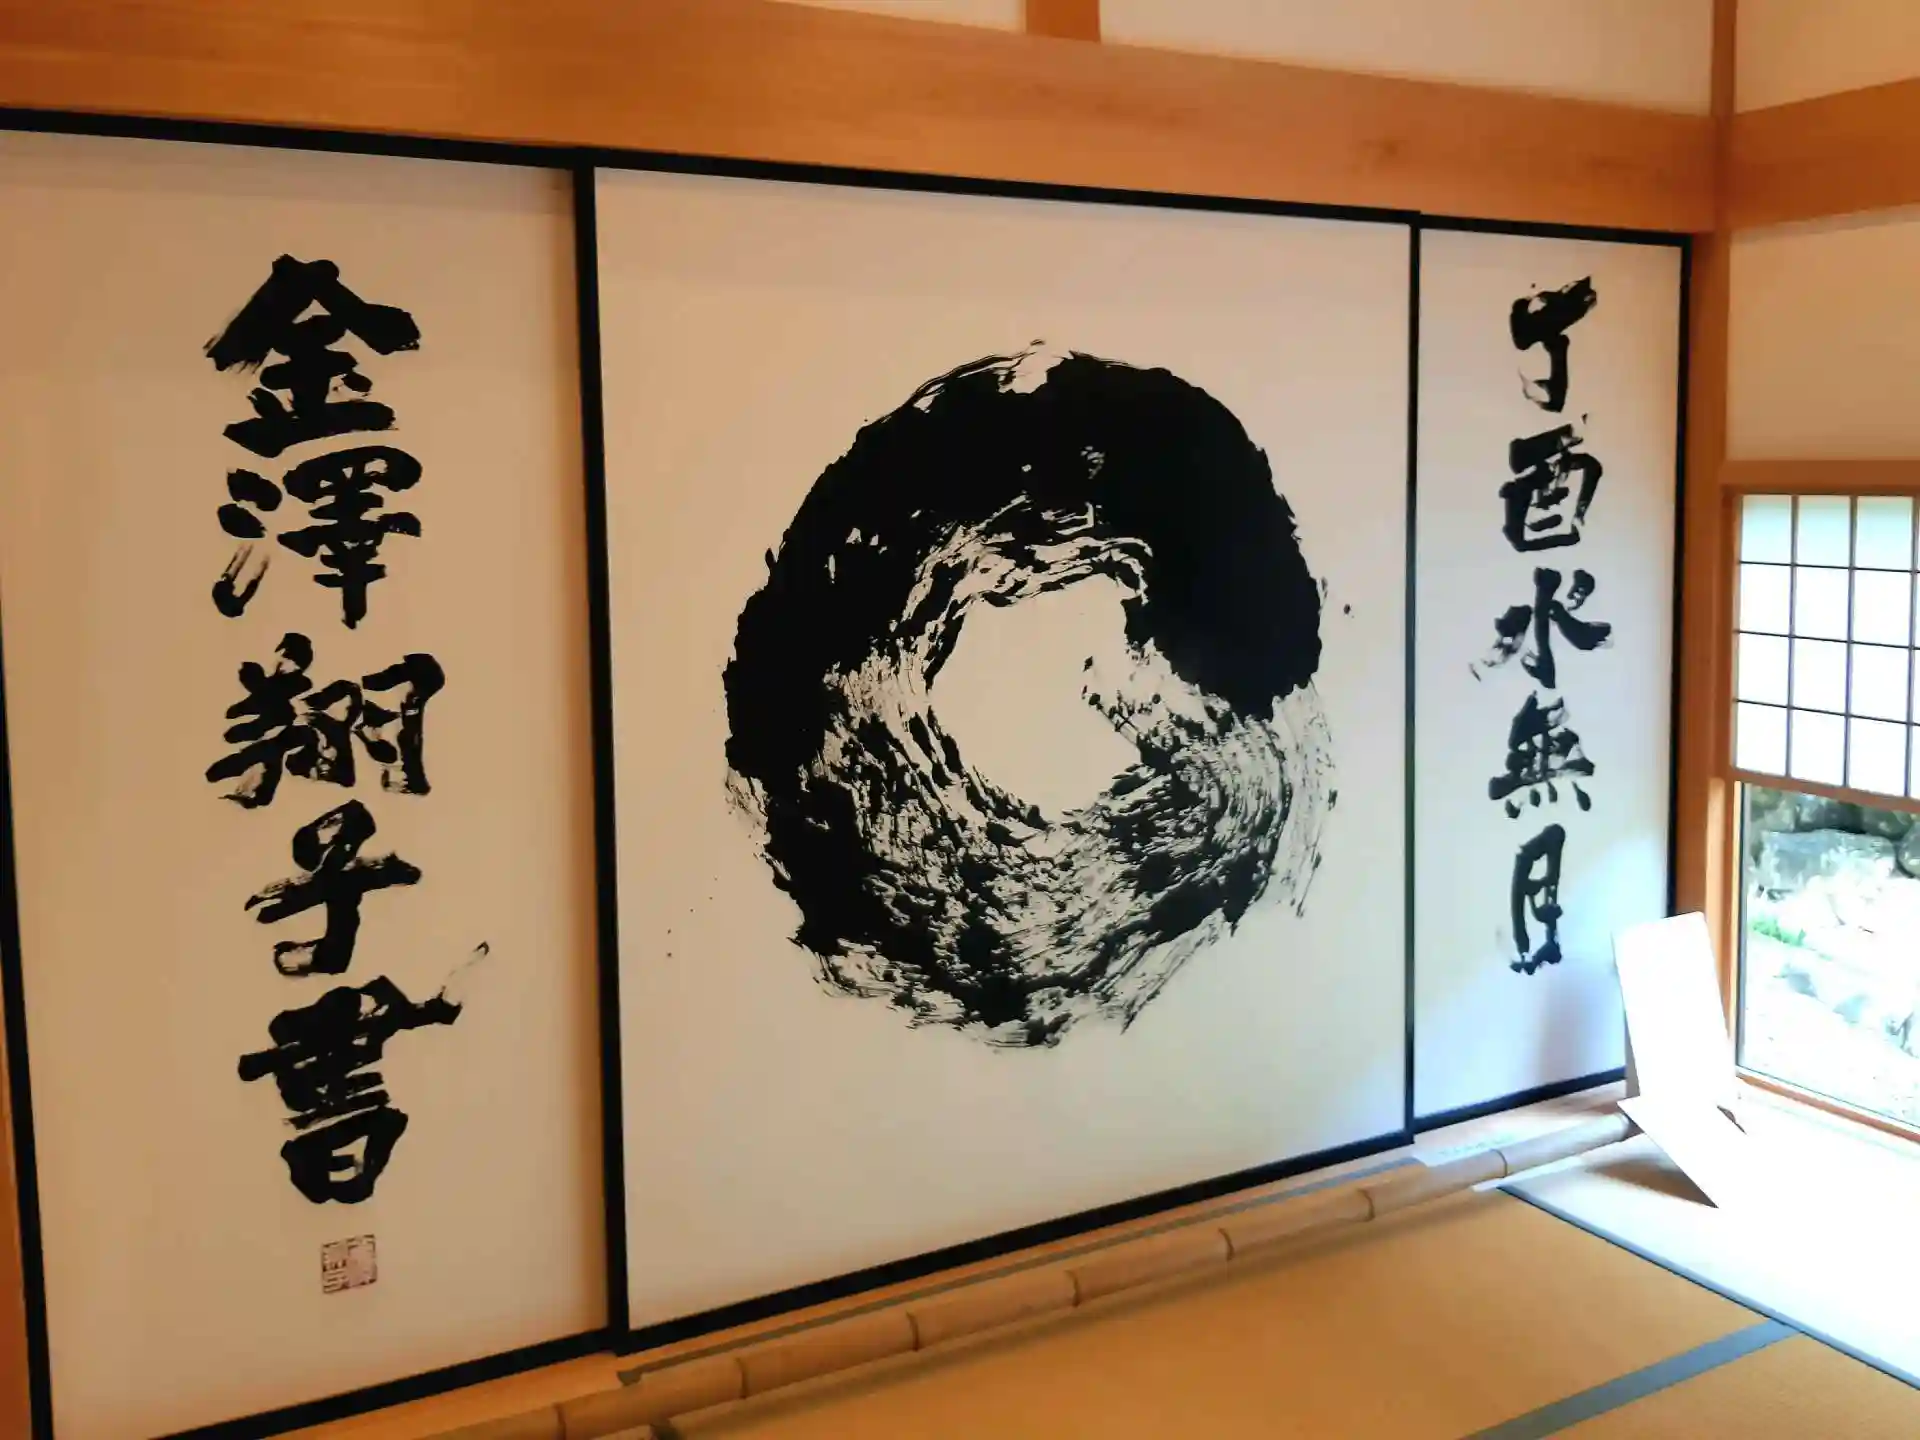 丁酉水無月
金澤翔子書